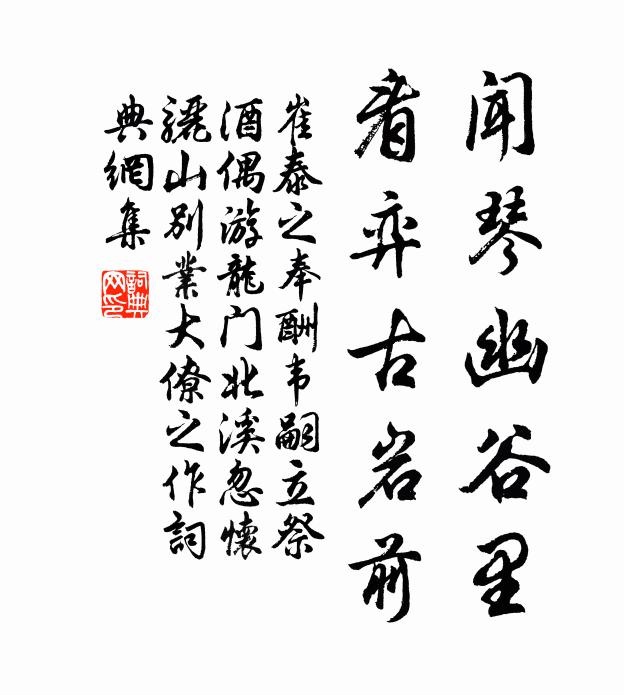 闻琴幽谷里
看弈古岩前
崔泰之奉酬韦嗣立祭
酒偶游龍门北溪忽懷
骊山別業大僚之作詞
典網集
詞典
网印